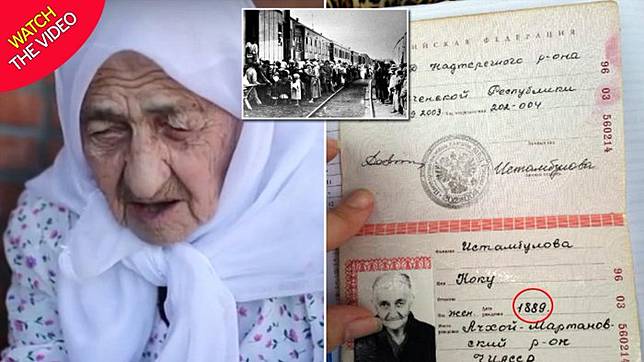 WATCH
THE VIDEO
ЙСКАЯ ФЕДЕРАЦИЯ
Надтеречного р-она
ченской Республики
2003
202-004
96 03 560214
Истамбулова
Истамбулова
Имя
Коку
жен.
Дата
рождения
1889.
Место
рождения
Ачхой-Мартанов-
ский р-он
ЧИАССР
96 03 560214